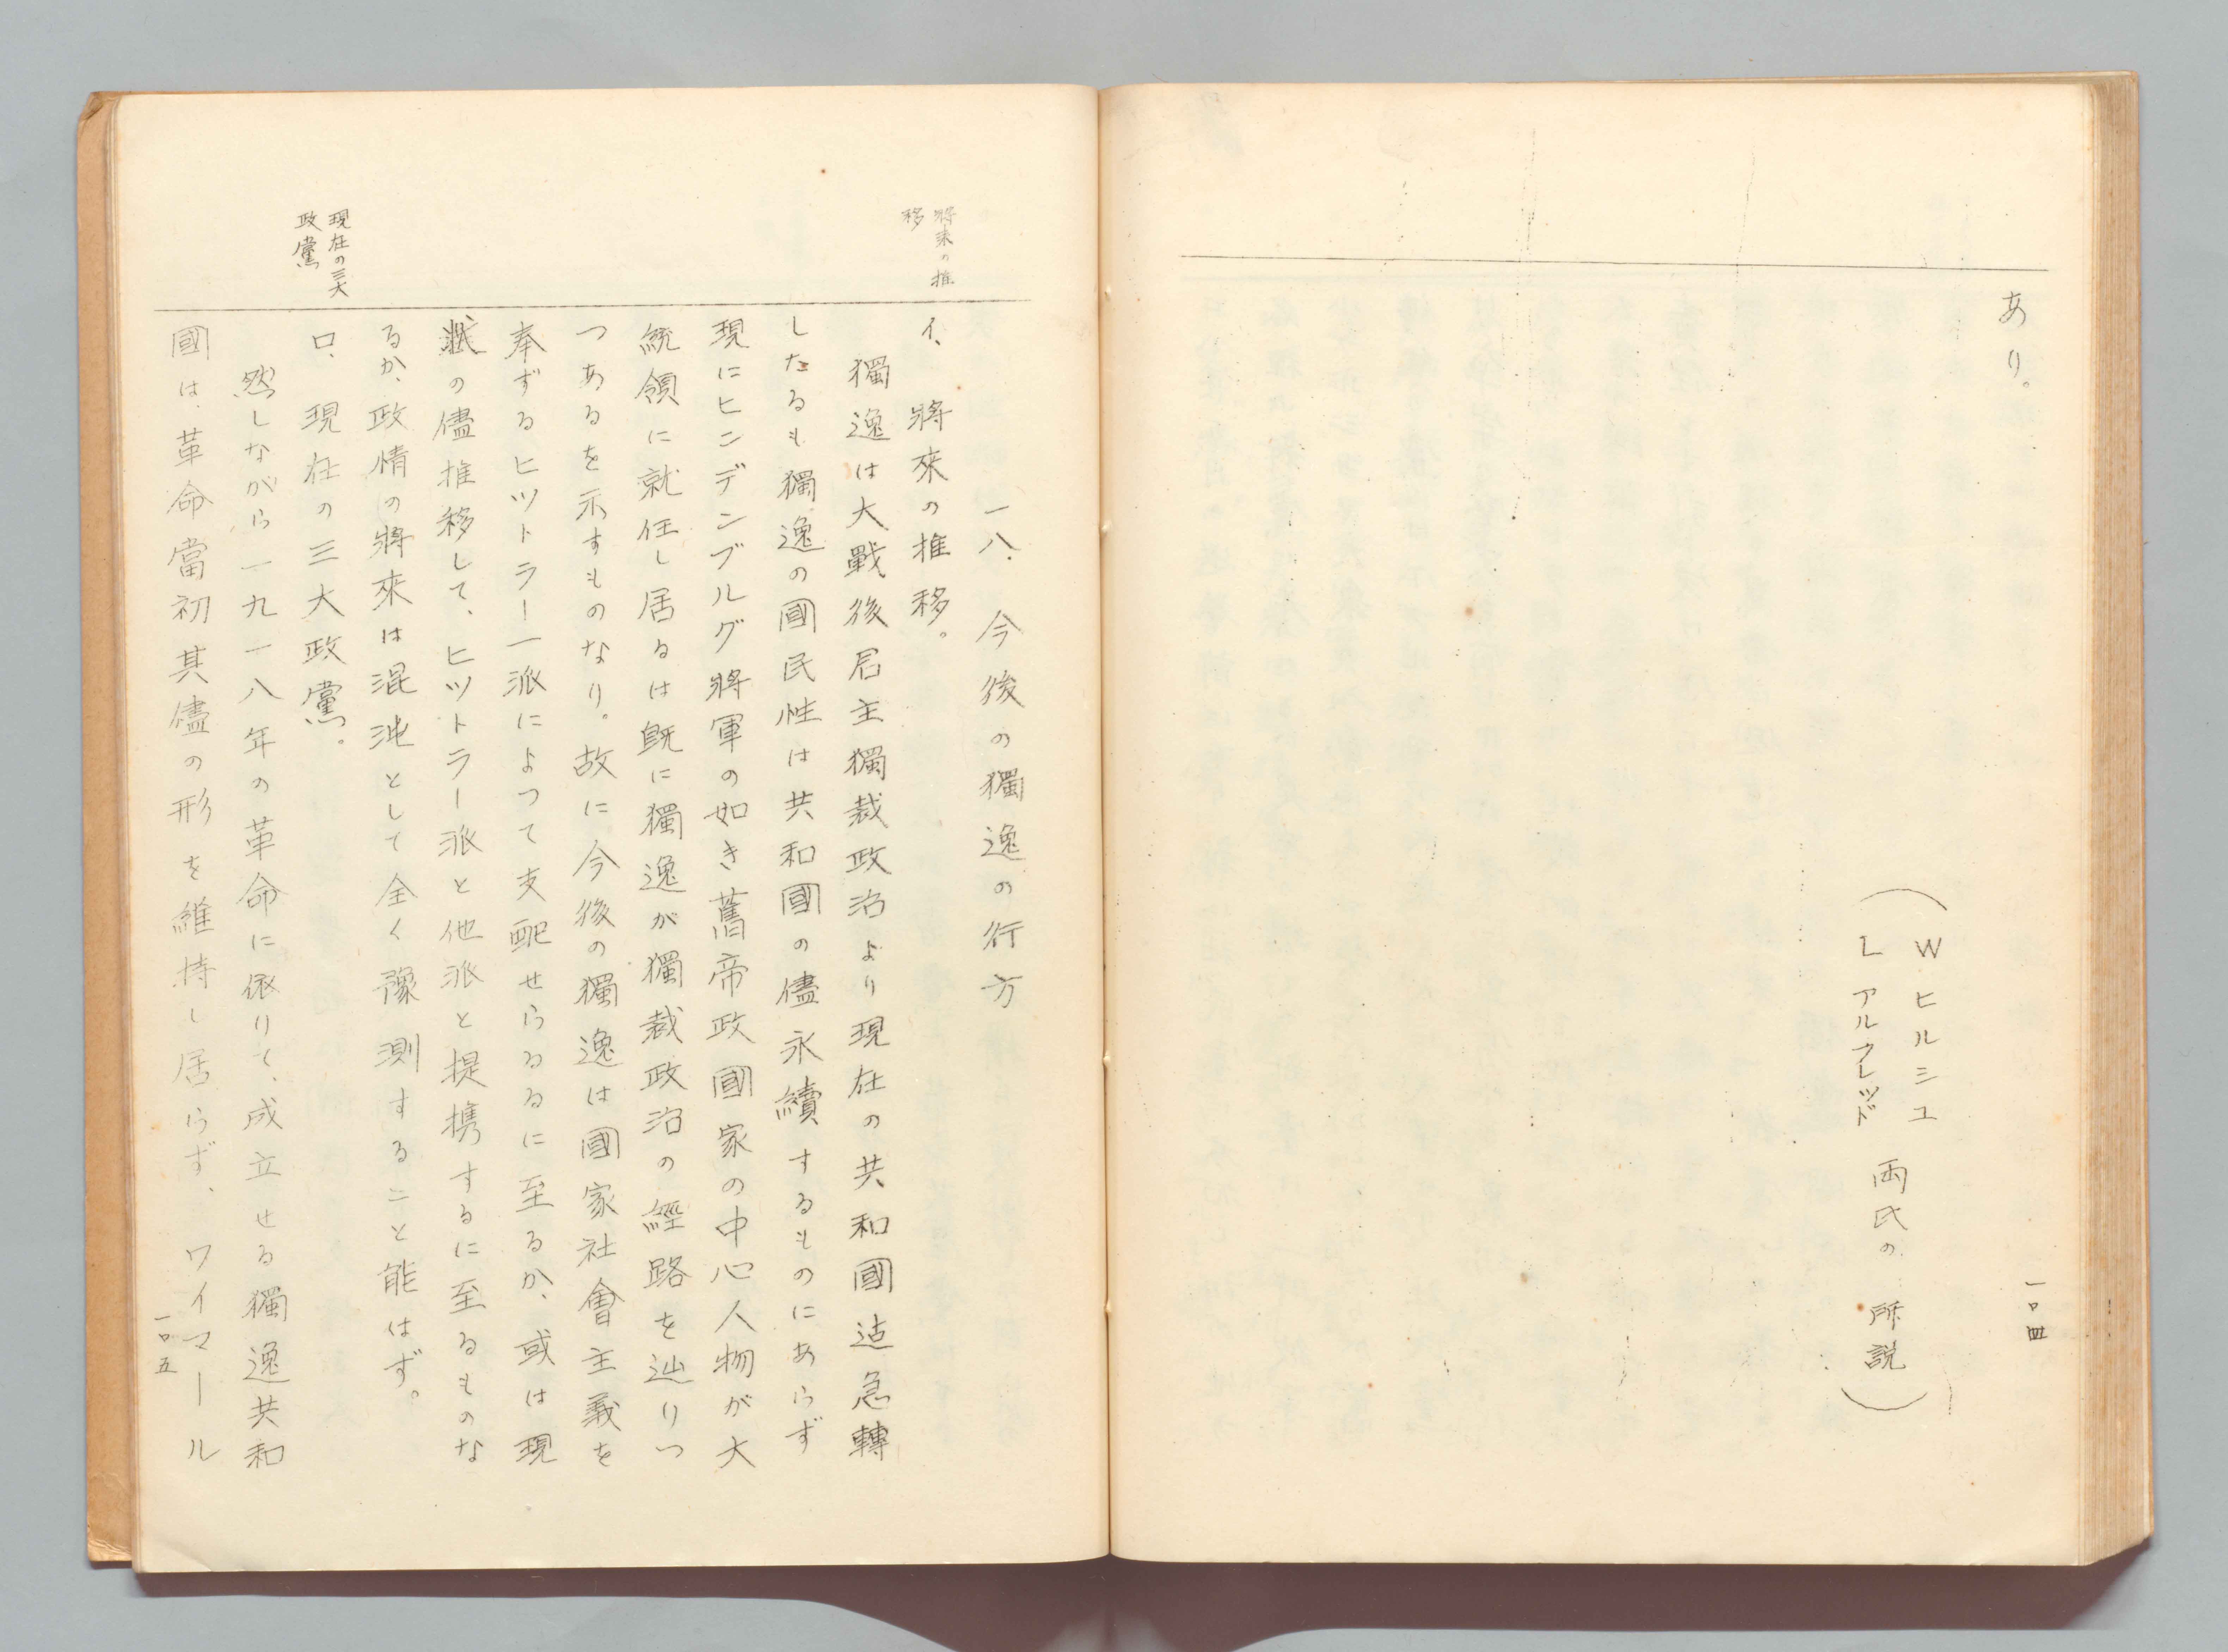 あり。
W ヒルシユ
L アルフレッド
両氏の所説
一〇四
將来の推
移
一八、今後の獨逸の行方
イ、將來の推移。
獨逸は大戰後君主獨裁政治より現在の共和國迠急轉
したるも獨逸の國民性は共和國の儘永續するものにあらず
現にヒンデンブルグ將軍の如き舊帝政國家の中心人物が大
統領に就任し居るは既に獨逸が獨裁政治の經路を辿りつ
つあるを示すものなり。故に今後の獨逸は國家社會主義を
奉ずるヒツトラー一派によつて支配せらるるに至るか、或は現
狀の儘推移して、ヒツトラー派と他派と提携するに至るものな
るか、政情の將來は混沌として全く豫測すること能はず。
現在の三大
政黨
ロ、現在の三大政黨。
然しながら一九一八年の革命に依りて、成立せる獨逸共和
國は、革命當初其儘の形を維持し居らず、ワイマール
一〇五